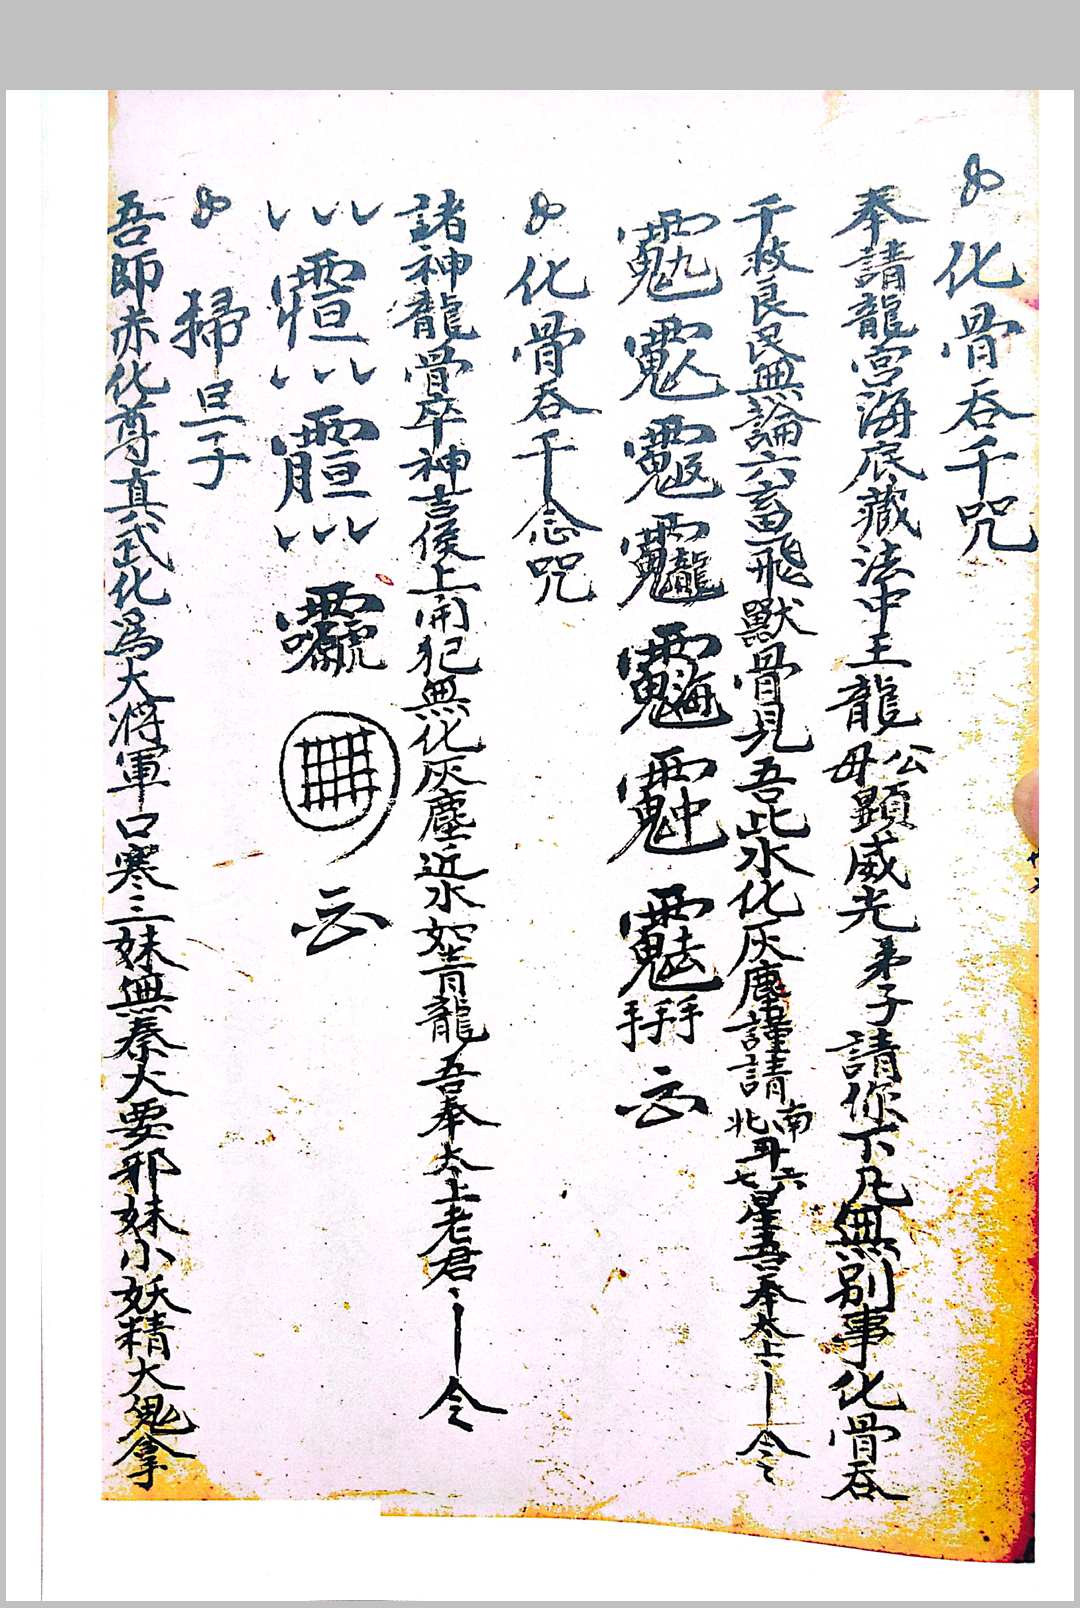 化骨吞千咒
奉請龍宮海底藏法中王龍公母顕威光弟子請你下凡無别事化骨吞
千救良民無論六畜飛獸骨見吾此水化灰塵謹請南北斗六七星吾奉太上令
云
化骨吞千念咒
諸神龍骨卒神言侯上開犯無化灰塵近水如青龍吾奉太上老君令
云
掃旦子
吾師赤化尊真武化爲大將軍口寒三妹無秦大要邪妹小妖精大鬼拿